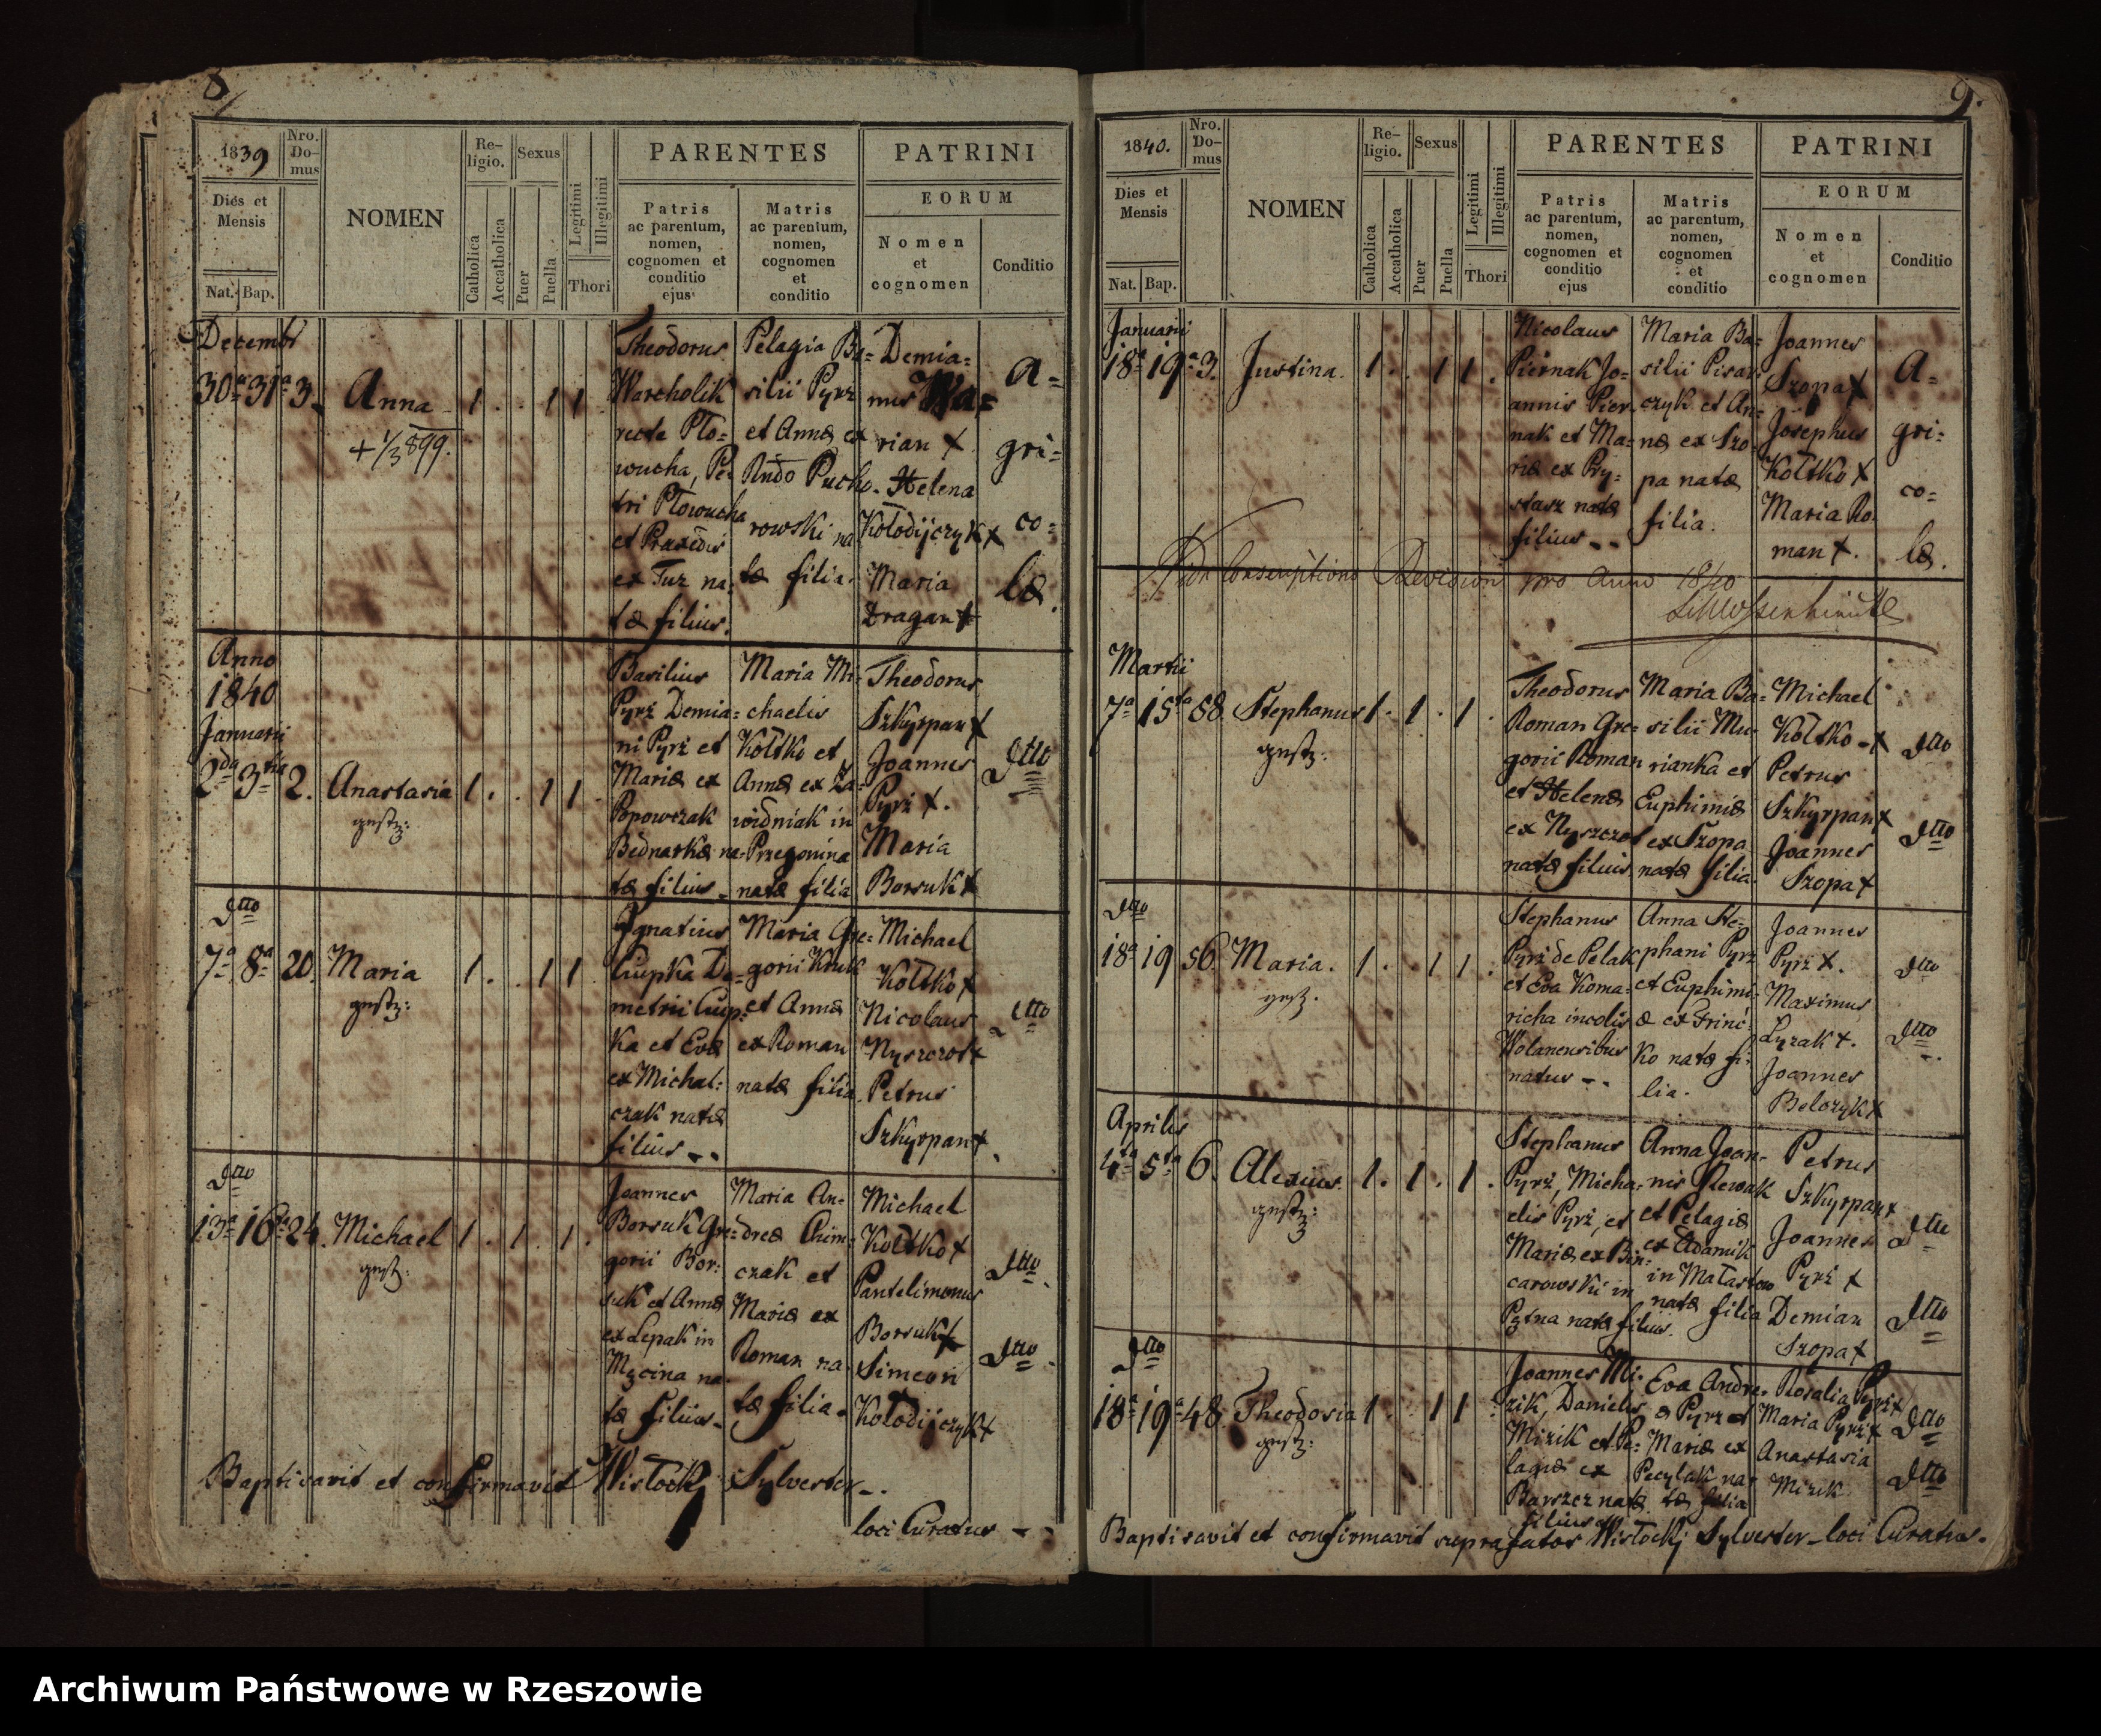 8
1839
Nro. Do- mus
NOMEN
Re- ligio.
Sexus
Legitimi
Illegitimi
PARENTES
PATRINI
Dies et Mensis
Catholica
Accatholica
Puer
Puella
Thori
Patris ac parentum, nomen, cognomen et conditio ejus
Matris ac parentum, nomen, cognomen et conditio
EORUM
Nomen et cognomen
Conditio
Nat. Bap.
Decembr
30a 31a 3. Anna 1 . . 1 1
+ 1/3 899.
Theodorus
Warcholik
recte Pło=
wucha, Pe=
tri Płowucha
et Praxedis
ex Tuz na=
tæ filius.
Pelagia Ba=
silii Pyrz
et Annæ ex
Rndo Pucho-
rowski na
tæ filia.
Demia=
nus Wa=
rian +
Helena
Kołodijczyk +
Maria
Dragan +
A=
gri=
co=
læ.
Anno
1840
Januarii
2da 3tia 2. Anastasia 1 . . 1 1 .
Basilius
Pyrz Demia=
ni Pyrz et
Mariæ ex
Popowczak
Bednarkæ na=
tæ filius.
Maria Mi=
chaelis
Kołtko et
Annæ ex Za=
widniak in
Przegonina
natæ filia
Theodorus
Szkyrpan +
Joannes
Pyrz +.
Maria
Borsuk +
Dtto
Dtto
7a 8a 20. Maria 1 . . 1 1
Ignatius
Ciupka De=
metrii Ciup=
ka et Evæ
ex Michal=
czak natæ
filius
Maria Gre=
gorii Kruk
et Annæ
ex Roman
natæ filia.
Michael
Kołtko +
Nicolaus
Nyszczot +
Petrus
Szkyrpan +.
Dtto
Dtto
13a 16a 24. Michael 1 . 1 . 1 .
Joannes
Borsuk Gre=
gorii Bor=
suk et Annæ
ex Lepak in
Męcina na=
tæ filius.
Maria An=
dreæ Chim=
czak et
Mariæ ex
Roman na=
tæ filia.
Michael
Kołtko +
Pantelimonus
Borsuk +
Simeon
Kołodijczyk +
Dtto
Dtto
Baptisavit et confirmavit Wisłockj Sylvester
loci Curatus
9.
1840.
Nro. Do- mus
NOMEN
Re- ligio.
Sexus
Legitimi
Illegitimi
PARENTES
PATRINI
Dies et Mensis
Catholica
Accatholica
Puer
Puella
Thori
Patris ac parentum, nomen, cognomen et conditio ejus
Matris ac parentum, nomen, cognomen et conditio
EORUM
Nomen et cognomen
Conditio
Nat. Bap.
Januarii
18a 19a 3. Justina. 1 . . 1 1 .
Nicolaus
Piernak Jo=
annis Pier=
nak et Ma=
riæ ex Pry=
stasz natæ
filius
Maria Ba=
silii Pisar
czyk et An=
næ ex Szo=
pa natæ
filia.
Joannes
Szopa +
Josephus
Kołtko +
Maria Ro=
man +.
A=
gri=
co=
læ.
Conscriptions Revision pro Anno 1840
Martii
7a 15ta 58. Stephanus 1 . 1 . 1 .
Theodorus
Roman Gre=
gorii Roman
et Helenæ
ex Nyszczot
natæ filius
Maria Ba=
silii Mu=
rianka et
Euphimiæ
ex Szopa
natæ filia.
Michael
Kołtko +
Petrus
Szkyrpan +
Joannes
Szopa +
Dtto
Dtto
Dtto
18a 19 56. Maria. 1 . . 1 1 .
Stephanus
Pyrz de Pelak
et Eva Koma=
richa incolis
Wolanensibus
natus
Anna Ste=
phani Pyrz
et Euphimi=
æ ex Frinc=
ko natæ fi=
lia.
Joannes
Pyrz +.
Maximus
Łyzak +.
Joannes
Belczyk +
Dtto
Dtto
Aprilis
4ta 5ta 6. Alexius. 1 . 1 . 1 .
Stephanus
Pyrz, Micha=
elis Pyrz, et
Mariæ ex Bin=
carowski in
Pętna natæ filius.
Anna Joan=
nis Rewak
et Pelagiæ
ex Adamik
in Małastow
natæ filia
Petrus
Szkyrpan +
Joannes
Pyrz +
Demian
Szopa +
Dtto
Dtto
Dtto
18a 19a 48. Theodosia 1 . . 1 1
Joannes Mi=
zik, Danielis
Mizik et Pe=
lagiæ ex
Barszcz natæ
filius
Eva Andre=
æ Pyrz et
Mariæ ex
Pecylak na=
tæ filia
Rosalia Pyrz +
Maria Pyrz +
Anastasia
Mizik
Dtto
Dtto
Baptisavit et confirmavit suprafatos Wisłockj Sylvester loci Curatus.
Archiwum Państwowe w Rzeszowie